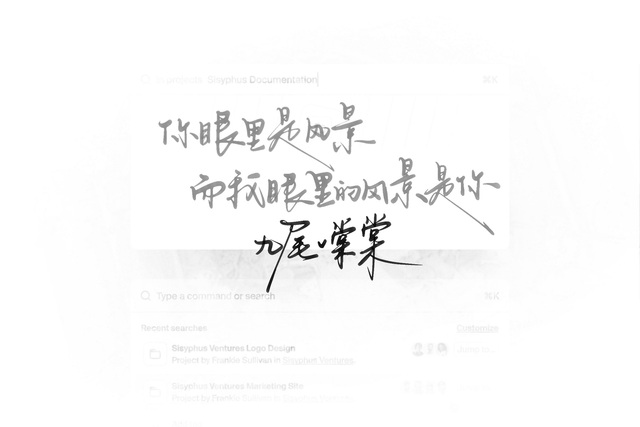 In projects Sisyphus Documentation ⌘K
你眼里是风景
而我眼里的风景是你
九尾噹棠
Type a command or search ⌘K
Recent searches Customize
Sisyphus Ventures Logo Design
Project by Frankie Sullivan in Sisyphus Ventures. Jump to...
Sisyphus Ventures Marketing Site
Project by Frankie Sullivan in